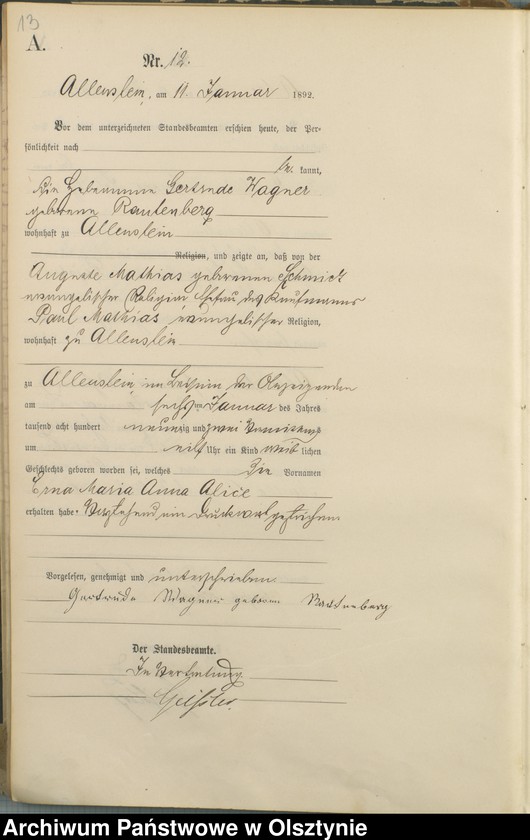 13
A.
Nr. 12.
Allenstein, am 11. Januar 1892.
Vor dem unterzeichneten Standesbeamten erschien heute, der Per-
sönlichkeit nach
be kannt,
die Hebamme Gertrude Wagner
geborene Rautenberg
wohnhaft zu Allenstein
Religion, und zeigte an, daß von der
Auguste Mathias geborenen Schmidt
evangelischer Religion Ehefrau des Kaufmanns
Paul Mathias evangelischer Religion,
wohnhaft zu Allenstein
zu Allenstein im Beisein der Anzeigenden
am sechsten Januar des Jahres
tausend acht hundert neunzig und zwei Vormittags
um elf Uhr ein Kind weib lichen
Geschlechts geboren worden sei, welches die Vornamen
Erna Maria Anna Alice
erhalten habe. Vorstehend ein Druckwort gestrichen
Vorgelesen, genehmigt und unterschrieben
Gertrude Wagner geborene Rautenberg
Der Standesbeamte.
In Vertretung
Archiwum Państwowe w Olsztynie